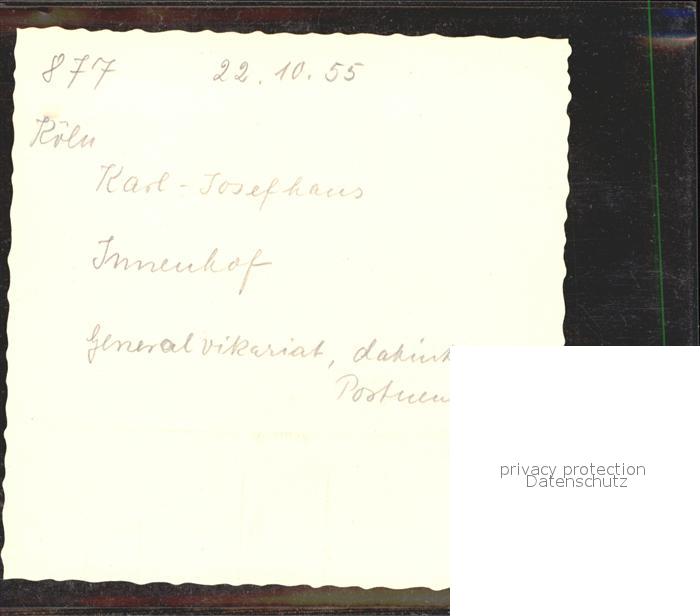 877 22.10.55
Köln
Karl-Josefhaus
Innenhof
Generalvikariat,
privacy protection
Datenschutz